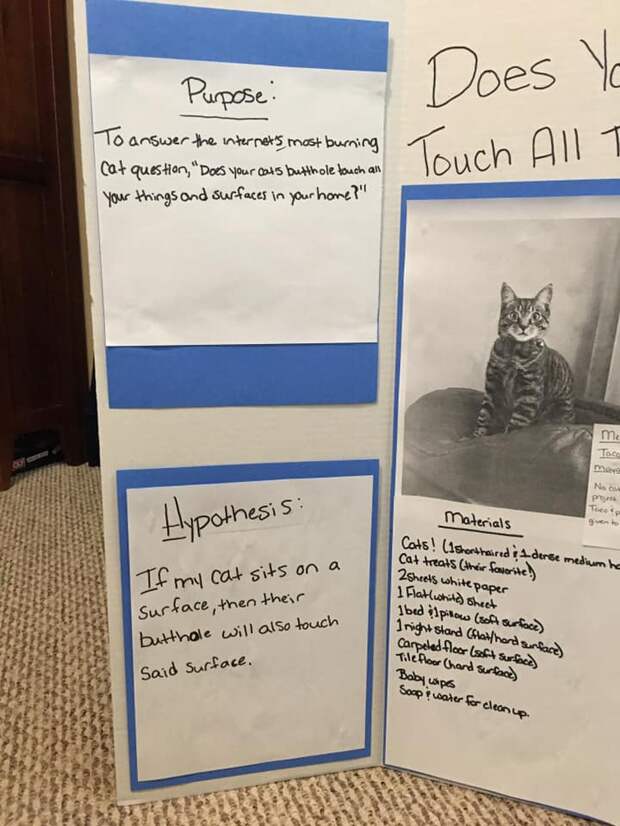 Purpose:
To answer the internets most burning
Cat question, "Does your cats butthole touch all
your things and surfaces in your home?"
Hypothesis:
If my cat sits on a
surface, then their
butthole will also touch
said surface.
Does Yo
Touch All T
Me
Taco
No
project.
given to
Materials
Cats! (1 shorthaired & 1 dense medium ha
Cat treats (their favorite!)
2 sheets white paper
1 Flat (white) sheet
1 bed & 1 pillow (soft surface)
1 night stand (flat/hard surface)
Carpeted floor (soft surface)
Tile floor (hard surface)
Baby wipes
Soap & water for clean up.